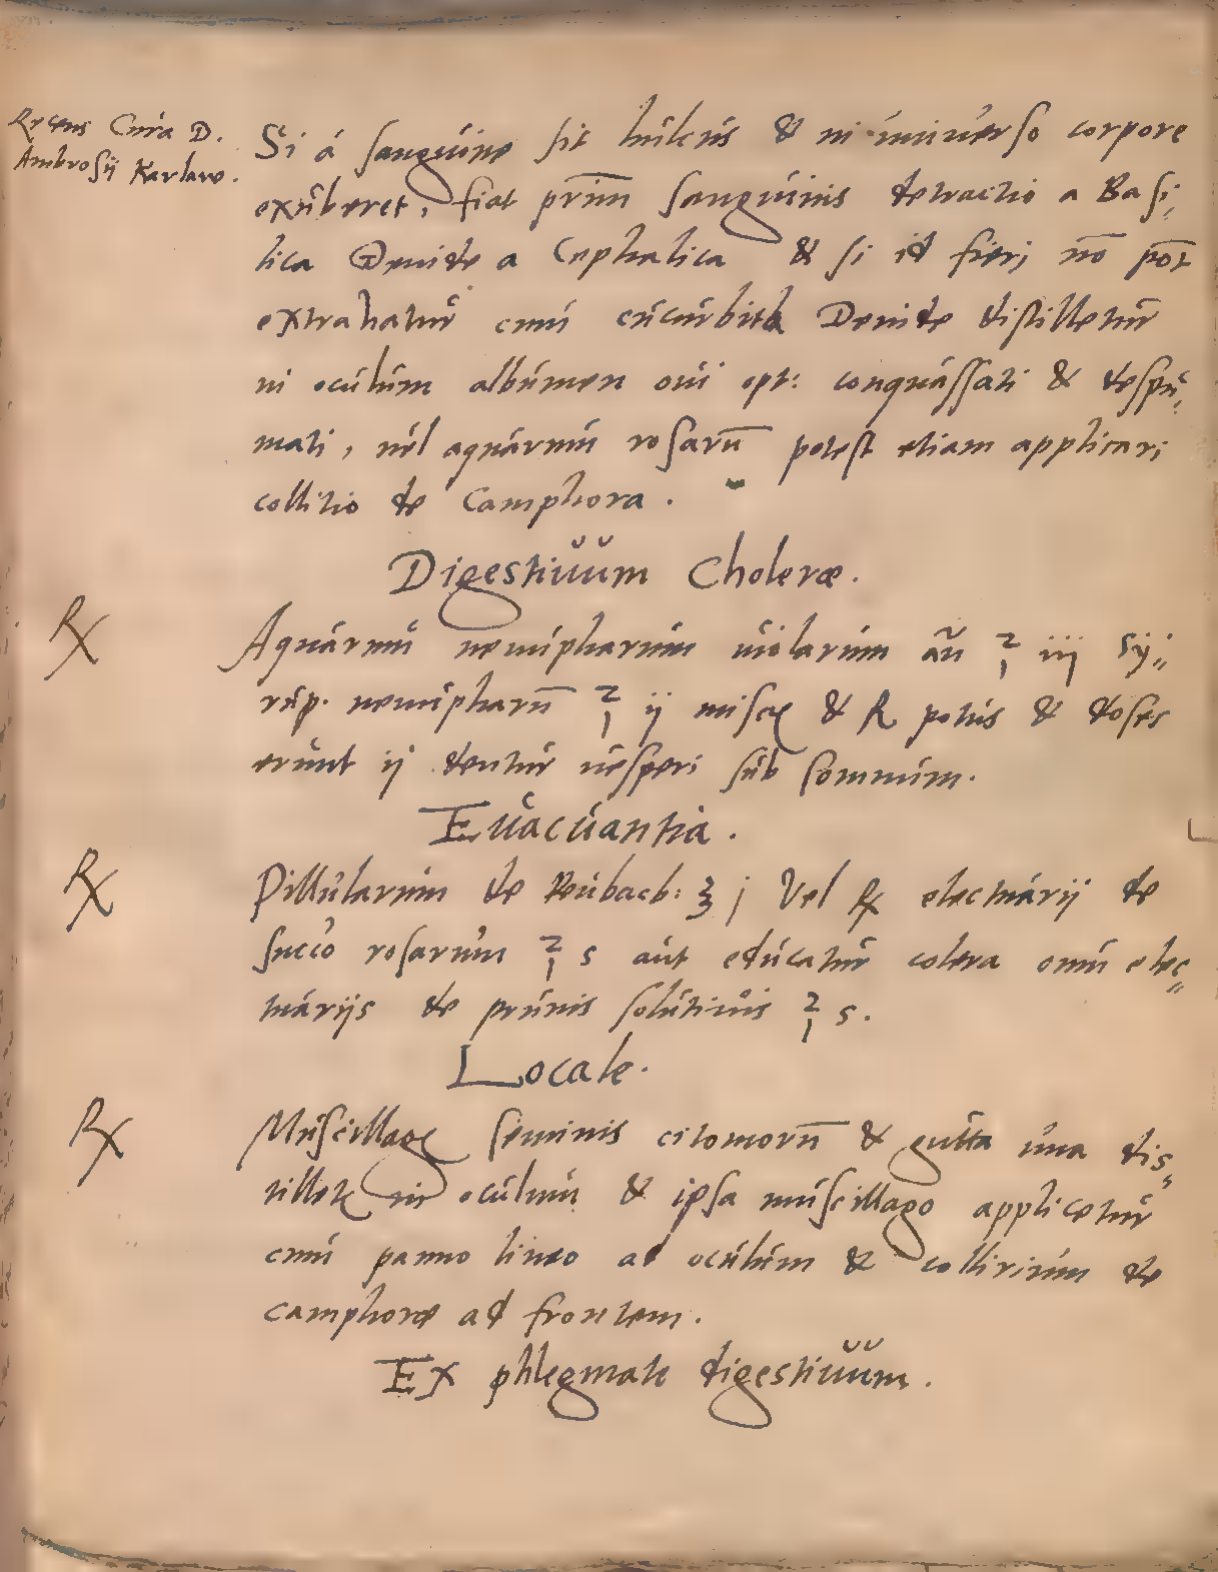 Recens Cura D.
Ambrosij Karlavo.
Si á sanguine sit hulcus & in universo corpore
exuberet, fiat prim̄ sanguinis detractio a Basi,,
lica Deinde a Cephalica & si id fieri nō pōt
extrahatur cum cucurbita Deinde distilletur
in oculum albumen oui opt: conquassati & despu,,
mati, uel aquarum rosarū potest etiam applicari
collitio de Camphora.
Digestiuum Choleræ.
℞ Aquarum nenupharum uiolarum añ ℥ iij Sy,,
rup. nenupharū ℥ ij misce & R potus & doses
erunt ij dentur uesperi sub somnum.
Euacuantia.
℞ Pillularum de Reubarb: ʒ j Vel ℞ electuarij de
succo rosarum ℥ s aut educatur colera cum elec,,
tuarijs de prunis solutiuis ℥ s.
Locale.
℞ Muscillage seminis citomorū & gutta una dis,,
tillet in oculum & ipsa muscillago applicetur
cum panno lineo ad oculum & collirium de
camphoræ ad frontem.
Ex phlegmate digestiuum.